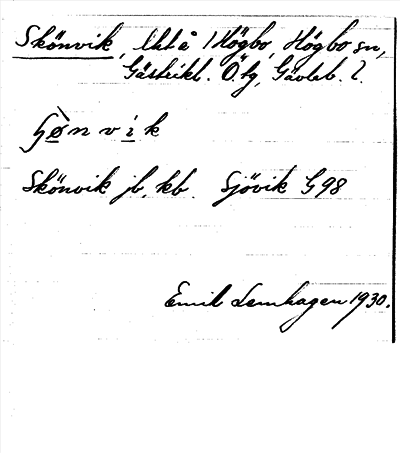 Skönvik, lht å 1 Högbo, Högbo sn,
Gästrikl. Ö. tg, Gävleb. l.
ɧö̀n v i k
Skönvik jb, kb. Sjövik G 98
Emil Lemhagen 1930.